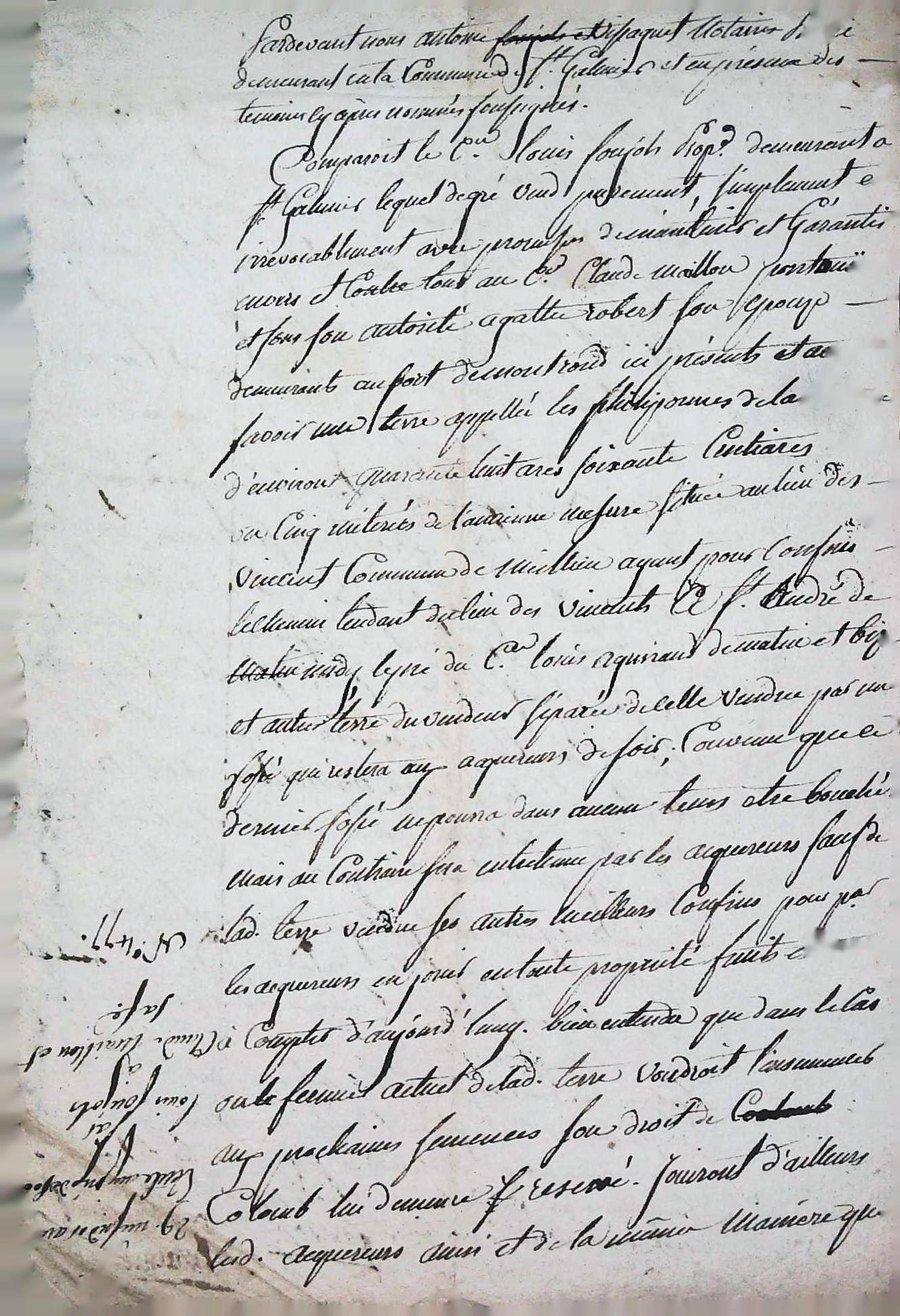 Pardevant nous antoine notaire
demeurant en la Commune de St. Galmier et en présence des
temoins cy après nommés soussignés.
Comparoit le Cen. louis foujols Propre. demeurant a
St. Galmier lequel de gré vend purement, simplement e
irrevocablement avec promesse de maintenir et Garantir
envers et Contre tous au Cen. Claude mallon pontonie
et sous son autorité agatte robert son epouze
demeurants au port de montrond ici présents et ac
savoir une terre appellée les phlipponnes de la
d'environ quarante huit ares soixante Centiares
ou Cinq méterées de l'ancienne mesure située au lieu des
vincent Commune de meillieu ayant pour Confins
le chemin tendant du lieu des vincents a St. André de
midy le pré du Cen. louis de matin et bize
et autre terre du vendeur séparée de celle vendue par un
fossé qui restera aux acquereurs de soir, Convenu que ce
dernier fossé ne pourra dans aucun tems etre bouché
mais au Contraire sera entretenu par les acquereurs sauf de
lad. terre vendue ses autres meilleurs Confins pour par
les acquereurs en jouir en toute propriété fruits e
Compter d'aujourd'huy. bien entendu que dans le Cas
ou le fermier actuel de lad. terre voudroit l'ensemencer
aux prochaines semences son droit de
Colomb lui demeure reservé. Jouiront d'ailleurs
lesd. acquereurs ainsi et de la même manière que
No. 477.
Claude maillon et
a
louis foujols
29